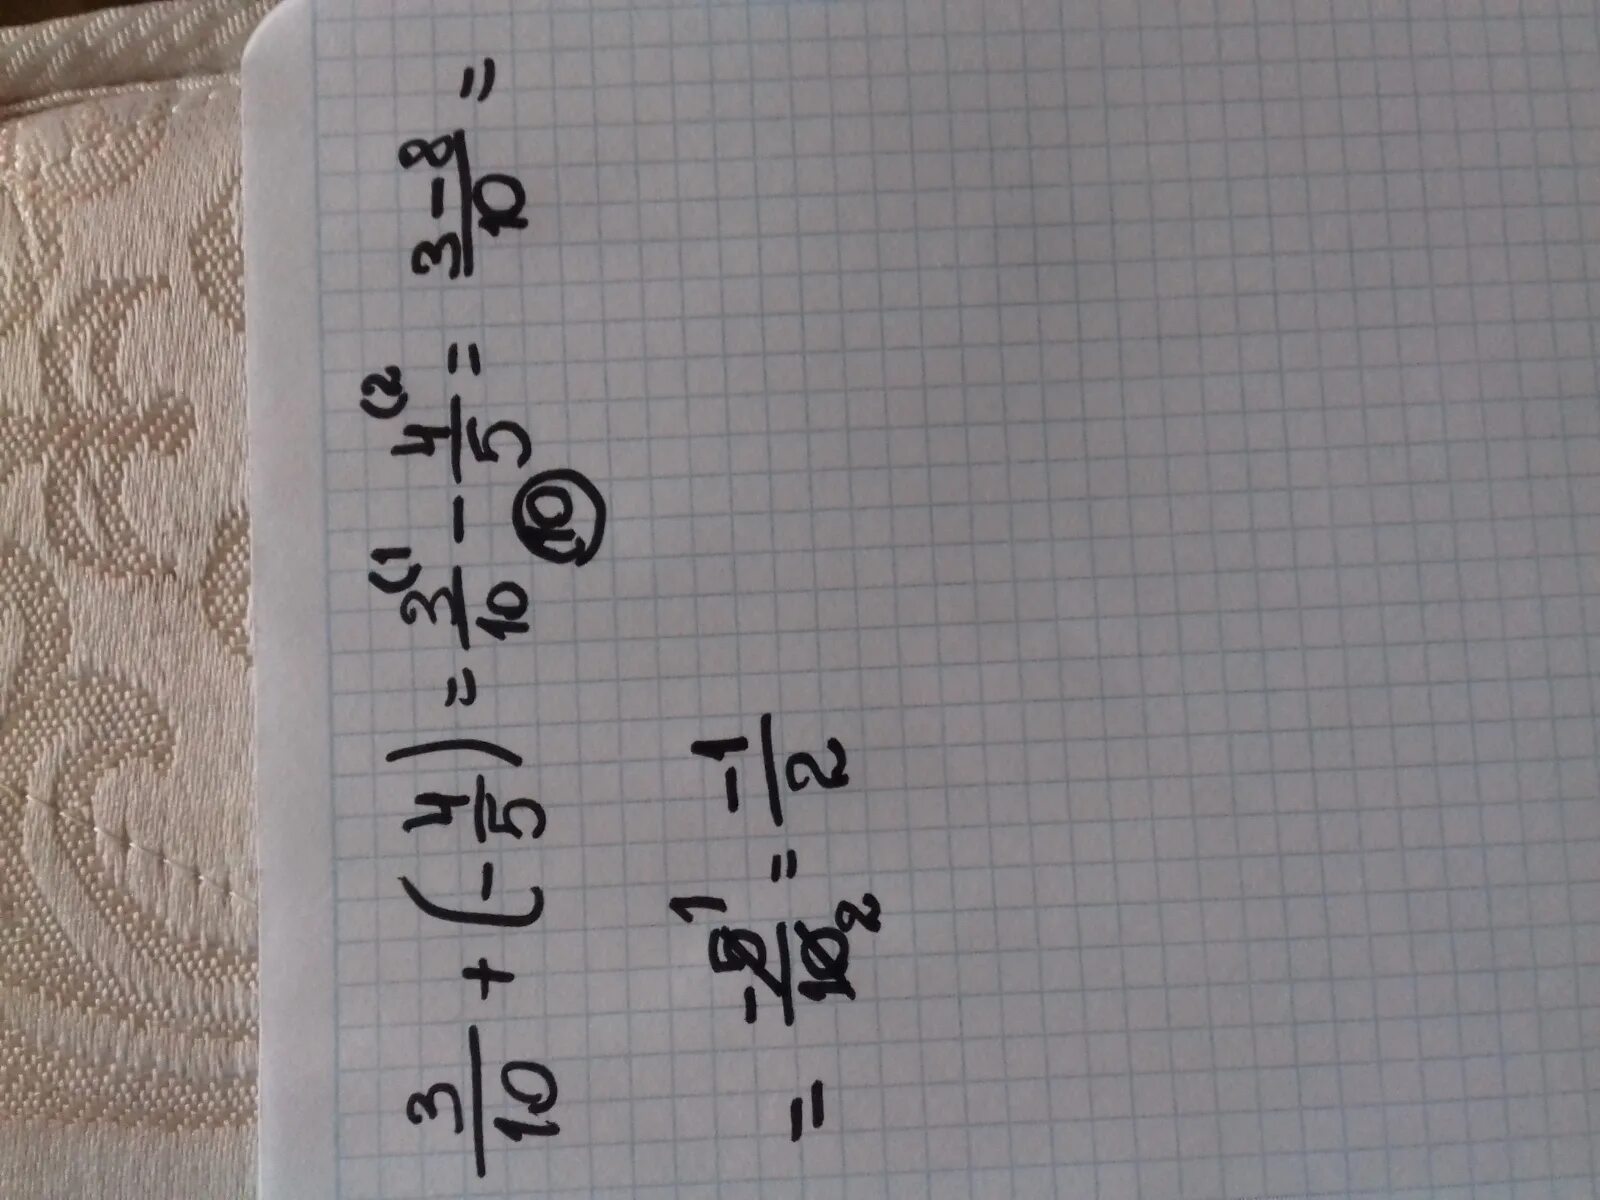 3/10 + (-4/5) = 3(1/10 - 4(2/5 = 3-8/10 =
10
= -5 1/10 2 = -1/2